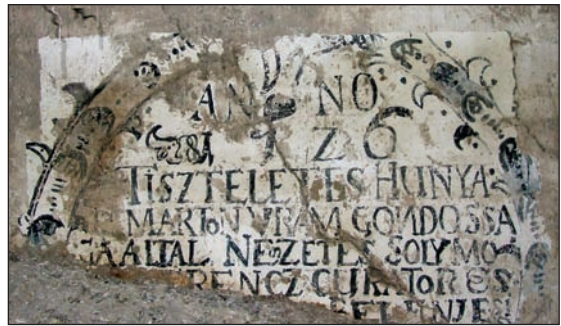 ANNO
1726
TISZTELETES HUNYA:
MARTON VRAM GONDOSSA
GA ALTAL NE͡SZETES SOLYMO
RENCZ CURATOR